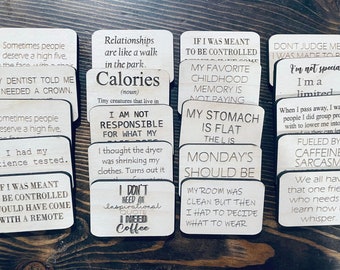 Sometimes people
deserve a high five,
MY DENTIST TOLD ME
NEEDED A CROWN.
Sometimes people
deserve a high five,
I had my
patience tested.
IF I WAS MEANT
TO BE CONTROLLED
WOULD HAVE COME
WITH A REMOTE
Relationships
are like a walk
in the park.
Calories
(noun)
Tiny creatures that live in
I AM NOT
RESPONSIBLE
FOR WHAT MY
I thought the dryer
was shrinking my
clothes. Turns out it
I DON'T
NEED AN
Inspirational
QUOTE
I NEED
Coffee
IF I WAS MEANT
TO BE CONTROLLED
MY FAVORITE
CHILDHOOD
MEMORY IS
NOT PAYING
MY STOMACH
IS FLAT
THE L IS
MONDAY'S
SHOULD BE
MY ROOM WAS
CLEAN BUT THEN
I HAD TO DECIDE
WHAT TO WEAR
DON'T JUDGE ME
I WAS
I'm not special
I'm a
limited
When I pass away, I want
people I did group projects
with to lower me
FUELED BY
CAFFEINE
SARCASM
We all have
that one friend
who needs
learn how
whisper